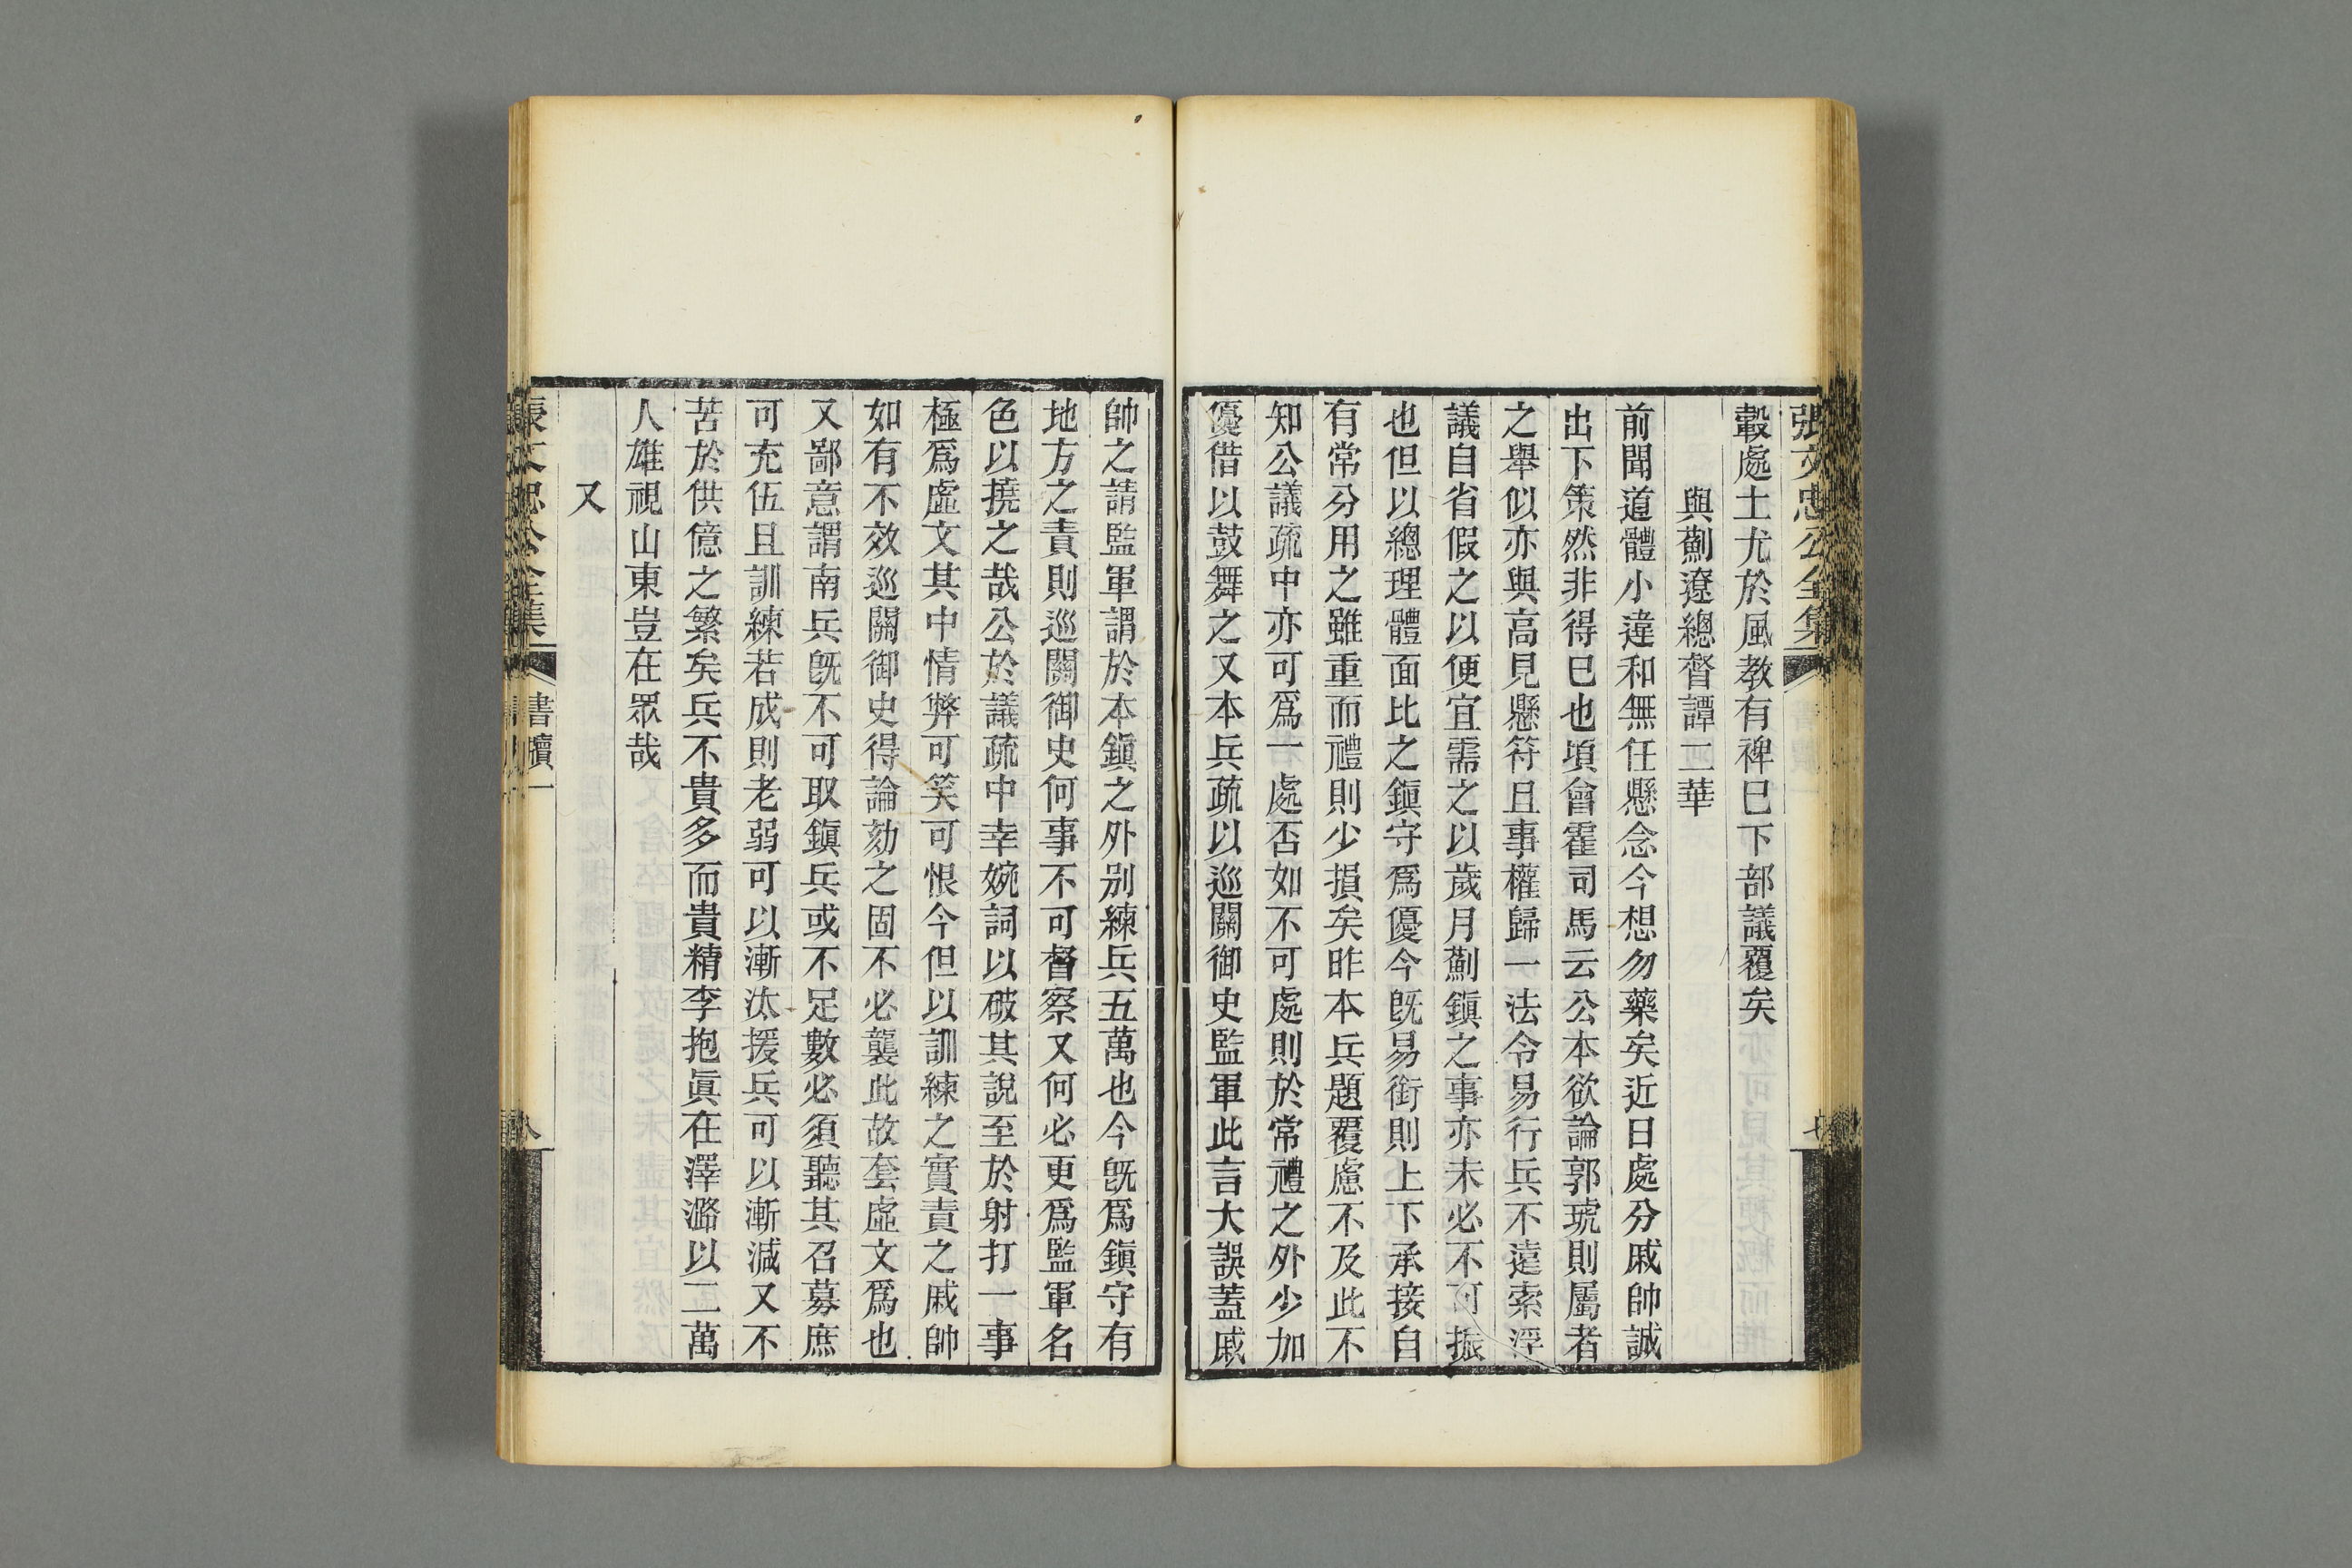 張文忠公全集
轂處士尤於風教有裨已下部議覆矣
與薊遼總督譚二華
前聞道體小違和無任懸念今想勿藥矣近日處分戚帥誠
出下策然非得已也頃會霍司馬云公本欲論郭琥則屬者
之舉似亦與高見懸符且事權歸一法令易行兵不遠索浮
議自省假之以便宜需之以歲月薊鎭之事亦未必不可振
也但以總理體面比之鎭守爲優今旣易銜則上下承接自
有常分用之雖重而禮則少損矣昨本兵題覆慮不及此不
知公議疏中亦可爲一處否如不可處則於常禮之外少加
優借以鼓舞之又本兵疏以巡關御史監軍此言大誤蓋戚
帥之請監軍謂於本鎭之外別練兵五萬也今旣爲鎭守有
地方之責則巡關御史何事不可督察又何必更爲監軍名
色以撓之哉公於議疏中幸婉詞以破其說至於射打一事
極爲虛文其中情弊可笑可恨今但以訓練之實責之戚帥
如有不效巡關御史得論劾之固不必襲此故套虛文爲也
又鄙意謂南兵旣不可取鎭兵或不足數必須聽其召募庶
可充伍且訓練若成則老弱可以漸汰援兵可以漸減又不
苦於供億之繁矣兵不貴多而貴精李抱眞在澤潞以二萬
人雄視山東豈在眾哉
又
張文忠公全集 書牘一 八